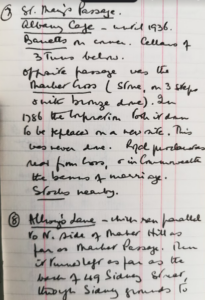 ⑦ St. Mary's Passage.
Albany Café – until 1936.
Barretts on corner. Cellars of
3 Tuns below.
Opposite passage was the
Market Cross (Stone, on 3 steps
with bronze dome). In
1786 the Corporation took it down
to be replaced on a new site. This
was never done. Royal proclamations
read from Cross, & in Commonwealth
the banns of marriage.
Stocks nearby.
⑧ Allwyn's Lane – which ran parallel
to N. side of Market Hill as
far as Market Passage. Then
it turned left as far as the
back of 49 Sidney Street,
through Sidney grounds to